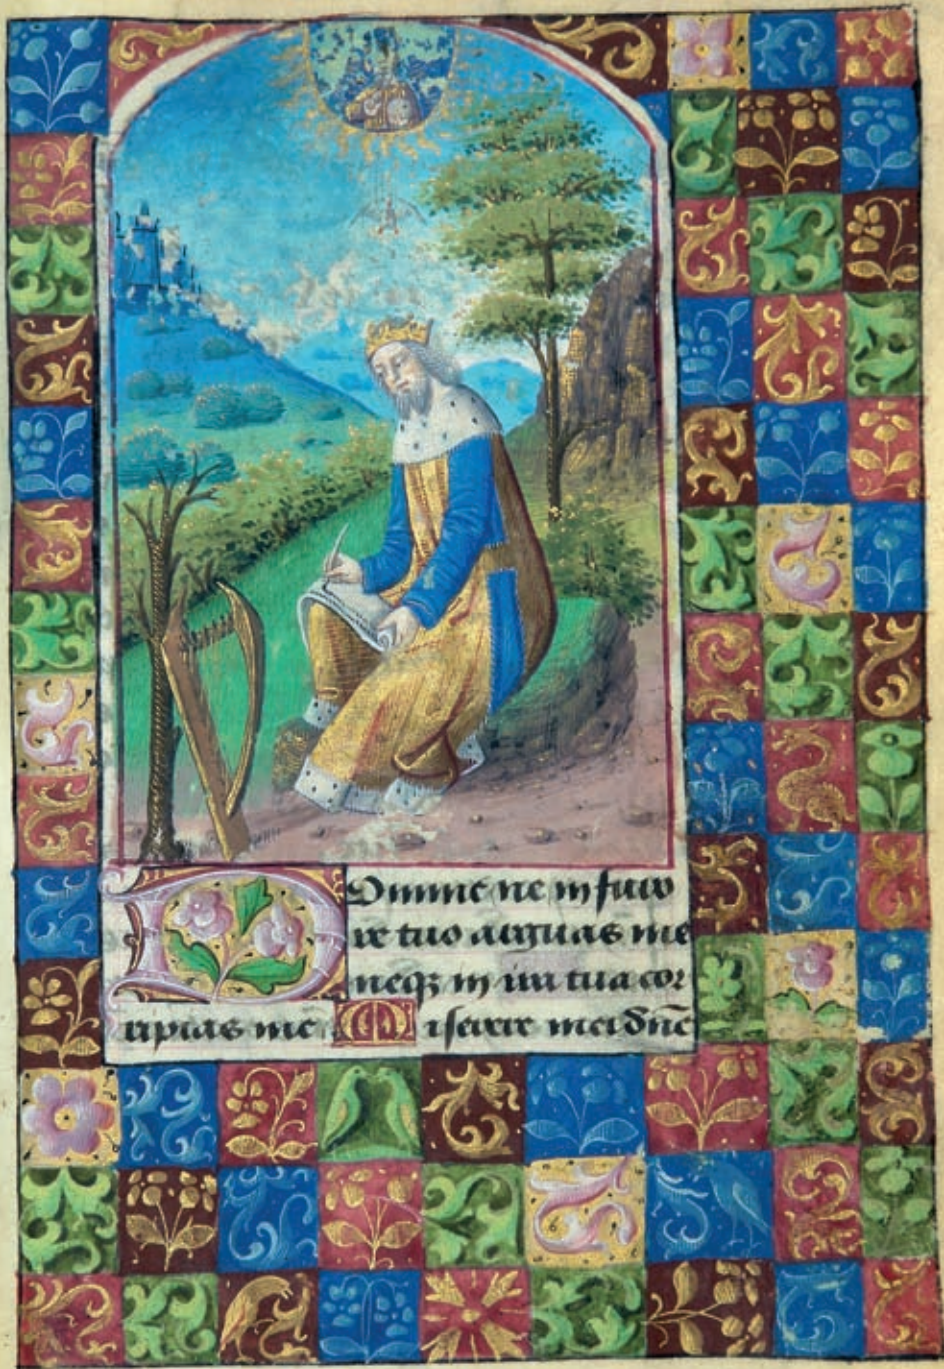 Domine ne in furo
re tuo arguas me
neq₃ in ira tua cor
ripias me Miserere mei dn̄e